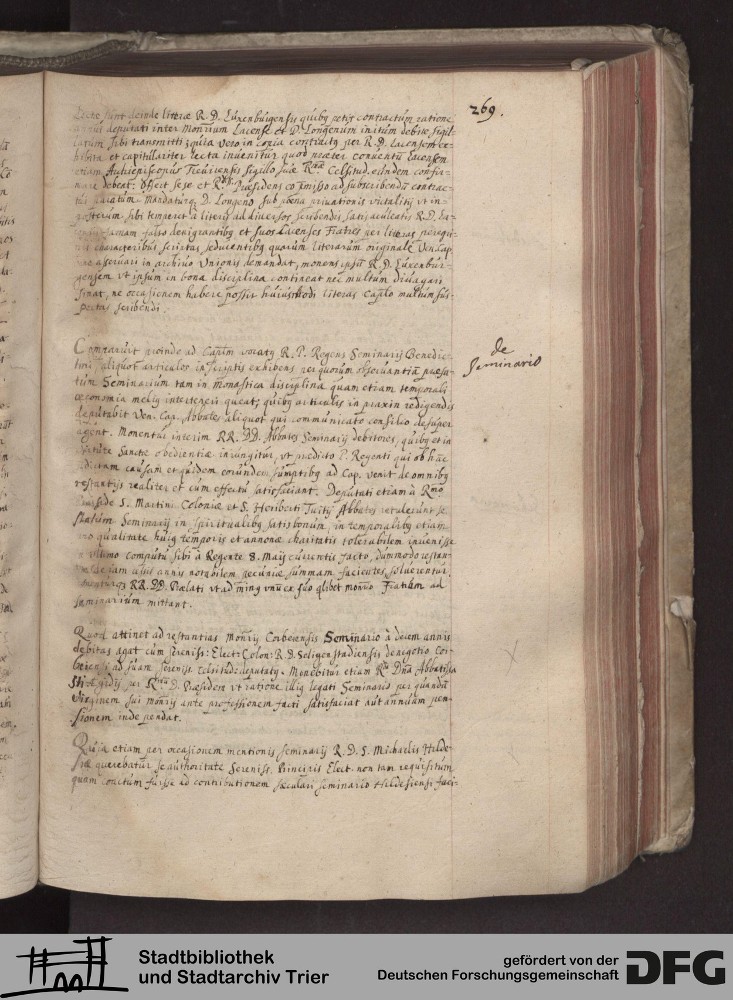 269.
Lectæ sunt deinde literæ R. D. Luxenburgensis quibq petijt contractum ratione
deputati inter Mon̄rium Lacense et D. Longenum initum debite sigil-
latum sibi transmitti; quia vero in copia contractq per R. D. Lacensem ex-
hibita et capitulariter lecta invenitur quod præter conventū Lacensem
etiam Archiepiscopus Trevirensis sigillo suæ Rmæ Celsitud. eundem confir-
mare debeat. Offert sese et Præsidens commisso ad subscribendū contrac-
paratum. Mandaturq D. Longeno sub pœna privationis victalitij vt in-
posterum sibi temperet a literis ad diversos scribendis satis aculeatis R. D. La-
famam falso denigrantibq et suos Lacenses Fratres per literas peregri-
nis characteribus scriptas seducentibq quarum literarum originale Ven. Cap.
asservari in archivo Unionis demandat, monens ipsū R. D. Luxenbur-
gensem vt ipsum in bona disciplina contineat nec multum divagari
sinat, ne occasionem habere possit huiusmodi literas Caplo multum sus-
pectas scribendi.
de
Seminario
Comparuit proinde ad Caplm vocatq R. P. Regens Seminarij Benedic-
tini, aliquot articulos in scriptis exhibens per quorum observantiā præfa-
tum Seminarium tam in monastica disciplina quam etiam temporali
œconomia meliq interteneri queat; quibq articulis in praxin redigendis
deputabit Ven. Cap. Abbates aliquot qui communicato consilio desuper
agent. Monentur interim RR. DD. Abbates Seminarij debitores, quibq et in
virtute Sanctæ obedientiæ iniungitur, vt prædicto P. Regenti qui ob hāc
causam et quidem eorundem sumptibq ad Cap. venit de omnibq
restantijs realiter et cum effectu satisfaciant. Deputati etiam à Rmo
Præside S. Martini Coloniæ et S. Heriberti Tuitij Abbates retulerunt se
statum Seminarij in spiritualibq satis bonum, in temporalibq etiam
pro qualitate huiq temporis et annonæ charitatis tolerabilem invenisse
ultimo computu sibi à Regente 8. Maij currentis facto, dummodo restan-
annis notabilem pecuniæ summam facientes soluerentur.
RR. DD. Prælati vt ad minq vnū ex suo qlibet monrio Fratrem ad
seminarium mittant.
Quod attinet ad restantias monrij Corbeiensis Seminario à decem annis
debitas agat cum Sereniss: Elect: Colon: R. D. Seligenstadiensis de negotio Cor-
beiensi ad suam Sereniss. Celsitud: deputatq. Monebitur etiam Rda Dna Abbatissa
Stæ Ægidij per Rdm D. Præsidem vt ratione illiq legati Seminario per quandā
virginem sui monrij ante professionem facti satisfaciat aut annuam pen-
sionem inde pendat.
Quia etiam per occasionem mentionis seminarij R. D. S. Michaelis Hilde-
siæ querebatur se authoritate Sereniss. Principis Elect. non tam requisitum
quam coactum fuisse ad contributionem sæculari seminario Hildesiensi faci-
Stadtbibliothek
und Stadtarchiv Trier
gefördert von der
Deutschen Forschungsgemeinschaft
DFG